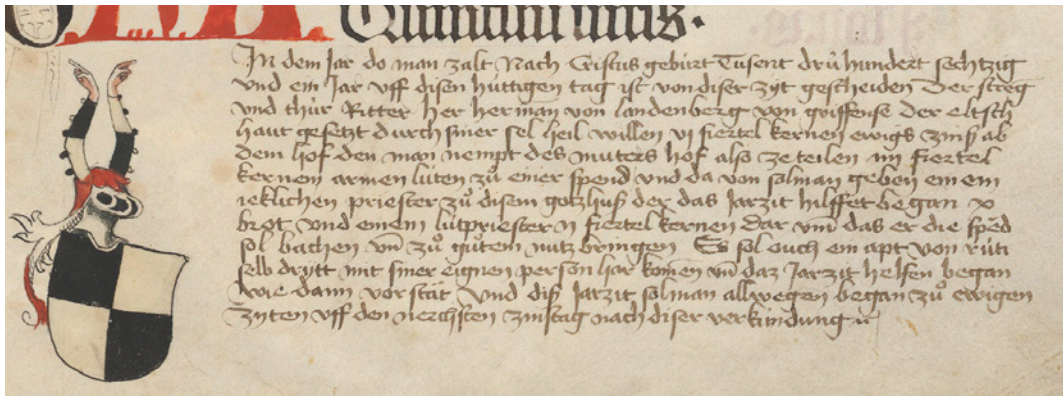 Quintini mris.
In dem Jar do man zalt Nach Cristus gebürt Tusent drühundert sechtzig
und ein Jar uff disen hüttigen tag ist von diser zyt gescheiden Der streng
und thür Ritter her herman von landenberg von griffense der eltsch
haut gesetzt durch siner sel heil willen vj fiertel kernen ewigs zinß ab
dem hof den man nempt des muters hof also ze teilen iiij fiertel
kernen armen lüten zů einer spend und da von sol man geben einem
ieklichen priester zů disem gotzhuß der das Jarzit hilffet began x
brot und einem lütpriester ij fiertel kernen dar um̄ das er die spēd
sol bachen un̄ zů gůtem nutz bringen Es sol ouch ein apt von rüti
selb dritt mit siner eignen person har komen un̄ daz Jarzit helfen began
wie dann vor stät Und diß Jarzit sol man allwegen began zů ewigen
Zyten uff den nechsten zinstag nach diser verkündung